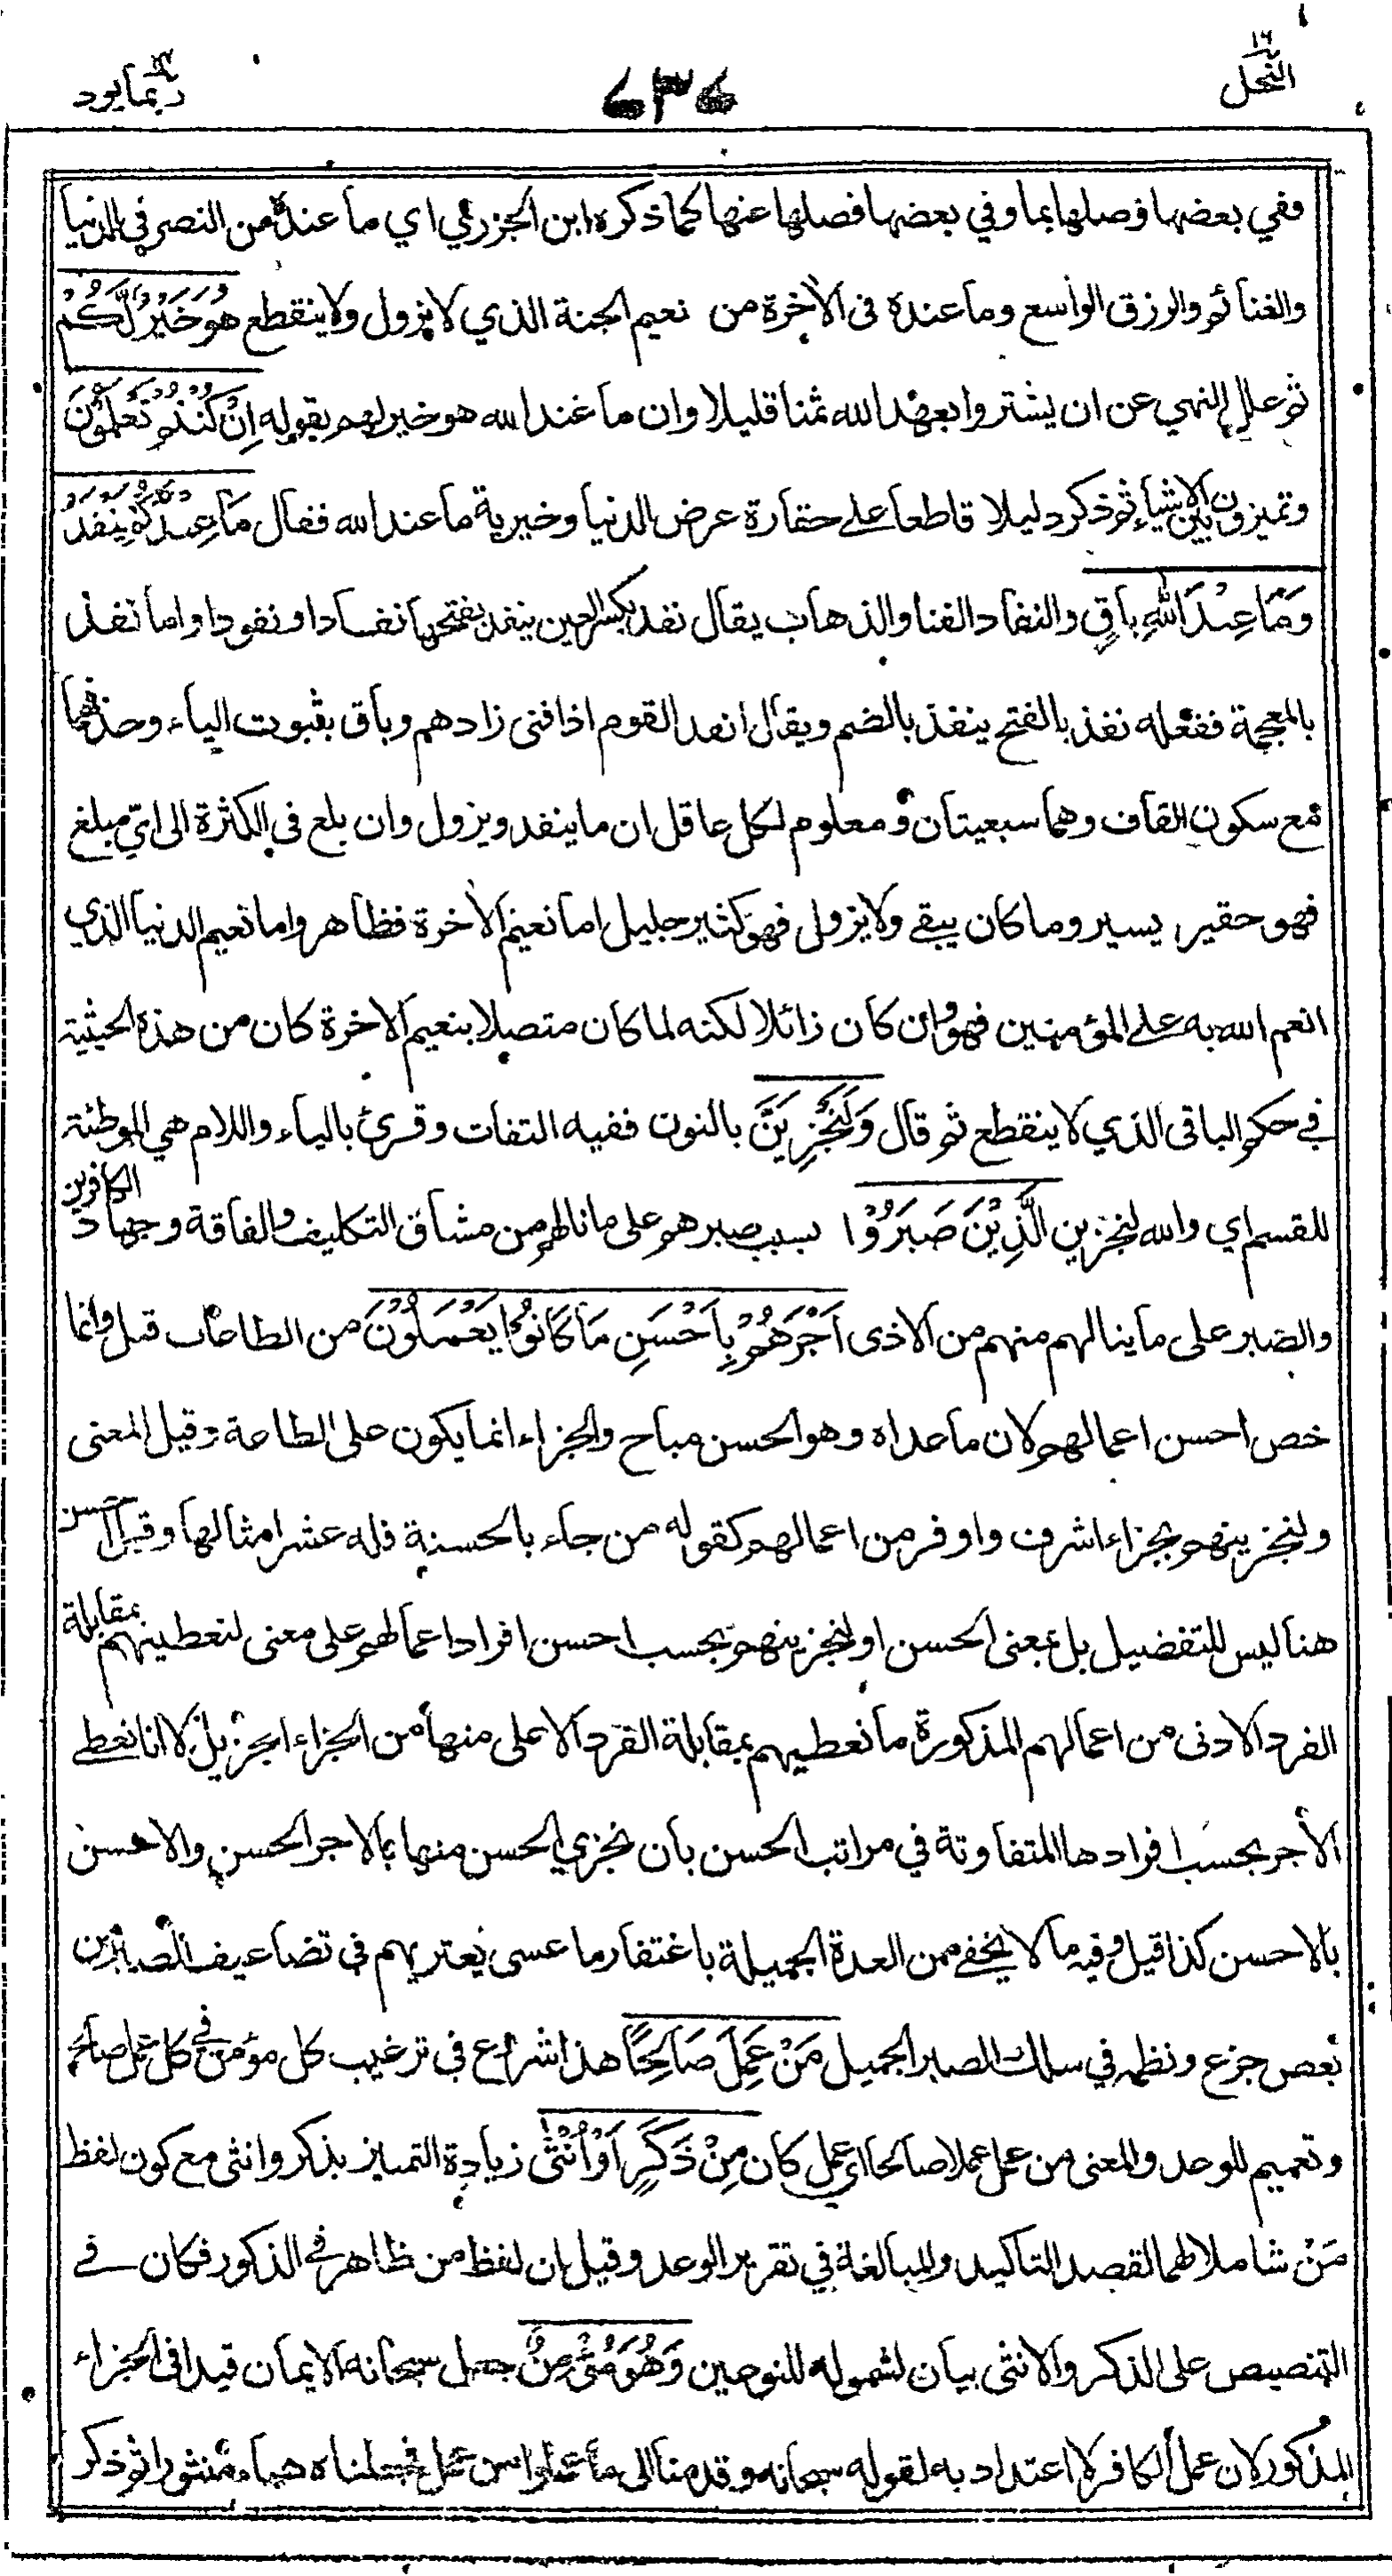 النحل ١٦
٦٣٦
ربما يود ١٤
ففي بعضها وصلها بما وفي بعضها فصلها عنها كما ذكره ابن الجزري اي ما عنده من النصر في الدنيا
والغنائم والرزق الواسع وما عنده في الآخرة من نعيم الجنة الذي لا يزول ولا ينقطع هُوَ خَيْرٌ لَّكُمْ
ثم علل النهي عن ان يشتروا بعهد الله ثمنا قليلا وان ما عند الله هو خير لهم بقوله اِنْ كُنْتُمْ تَعْلَمُوْنَ
وتميزون بين الاشياء ثم ذكر دليلا قاطعا على حقارة عرض الدنيا وخيرية ما عند الله فقال مَا عِنْدَكُمْ يَنْفَدُ
وَمَا عِنْدَ اللّٰهِ بَاقٍ والنفاد الفنا والذهاب يقال نفد بكسر العين ينفد بفتحها نفادا ونفودا واما نفذ
بالمعجمة ففعله نفذ بالفتح ينفذ بالضم ويقال انفد القوم اذا فنى زادهم وباق بثبوت الياء وحذفها
مع سكون القاف وهما سبعيتان ومعلوم لكل عاقل ان ما ينفد ويزول وان بلغ في الكثرة الى اي مبلغ
فهو حقير يسير وما كان يبقى ولا يزول فهو كثير جليل اما نعيم الآخرة فظاهر واما نعيم الدنيا الذي
انعم الله به على المؤمنين فهو وان كان زائلا لكنه لما كان متصلا بنعيم الآخرة كان من هذه الحيثية
في حكم الباقي الذي لا ينقطع ثم قال وَلَنَجْزِيَنَّ بالنون ففيه التفات وقرئ بالياء واللام هي الموطئة
للقسم اي والله لنجزين الَّذِيْنَ صَبَرُوْا بسبب صبرهم على ما نالهم من مشاق التكليف والفاقة وجهاد الكافرين
والصبر على ما ينالهم منهم من الاذى اَجْرَهُمْ بِاَحْسَنِ مَا كَانُوْا يَعْمَلُوْنَ من الطاعات قيل وانما
خص احسن اعمالهم لان ما عداه وهو الحسن مباح والجزاء انما يكون على الطاعة وقيل المعنى
ولنجزينهم بجزاء اشرف واوفر من اعمالهم كقوله من جاء بالحسنة فله عشر امثالها وقيل احسن
هنا ليس للتفضيل بل بمعنى الحسن او لنجزينهم بحسب احسن افراد اعمالهم على معنى لنعطينهم بمقابلة
الفرد الادنى من اعمالهم المذكورة ما نعطيهم بمقابلة الفرد الاعلى منها من الجزاء الجزيل لا انا نعطي
الأجر بحسب افرادها المتفاوتة في مراتب الحسن بان نجزي الحسن منها بالاجر الحسن والاحسن
بالاحسن كذا قيل وفيه ما لا يخفى من العدة الجميلة باغتفار ما عسى يعتريهم في تضاعيف الصابرين
بعض جزع ونظمه في سلك الصبر الجميل مَنْ عَمِلَ صَالِحًا هذا شروع في ترغيب كل مؤمن في كل عمل صالح
وتعميم للوعد والمعنى من عمل عملا صالحا اي عمل كان مِنْ ذَكَرٍ اَوْ اُنْثٰى زيادة التمييز بذكر وانثى مع كون لفظ
مَنْ شاملا لهما لقصد التاكيد والمبالغة في تقرير الوعد وقيل ان لفظ من ظاهر في الذكور فكان في
التنصيص على الذكر والانثى بيان لشموله للنوعين وَهُوَ مُؤْمِنٌ جعل سبحانه الايمان قيدا في الجزاء
المذكور لان عمل الكافر لا اعتداد به لقوله سبحانه وقدمنا الى ما عملوا من عمل فجعلناه هباء منثورا ثم ذكر